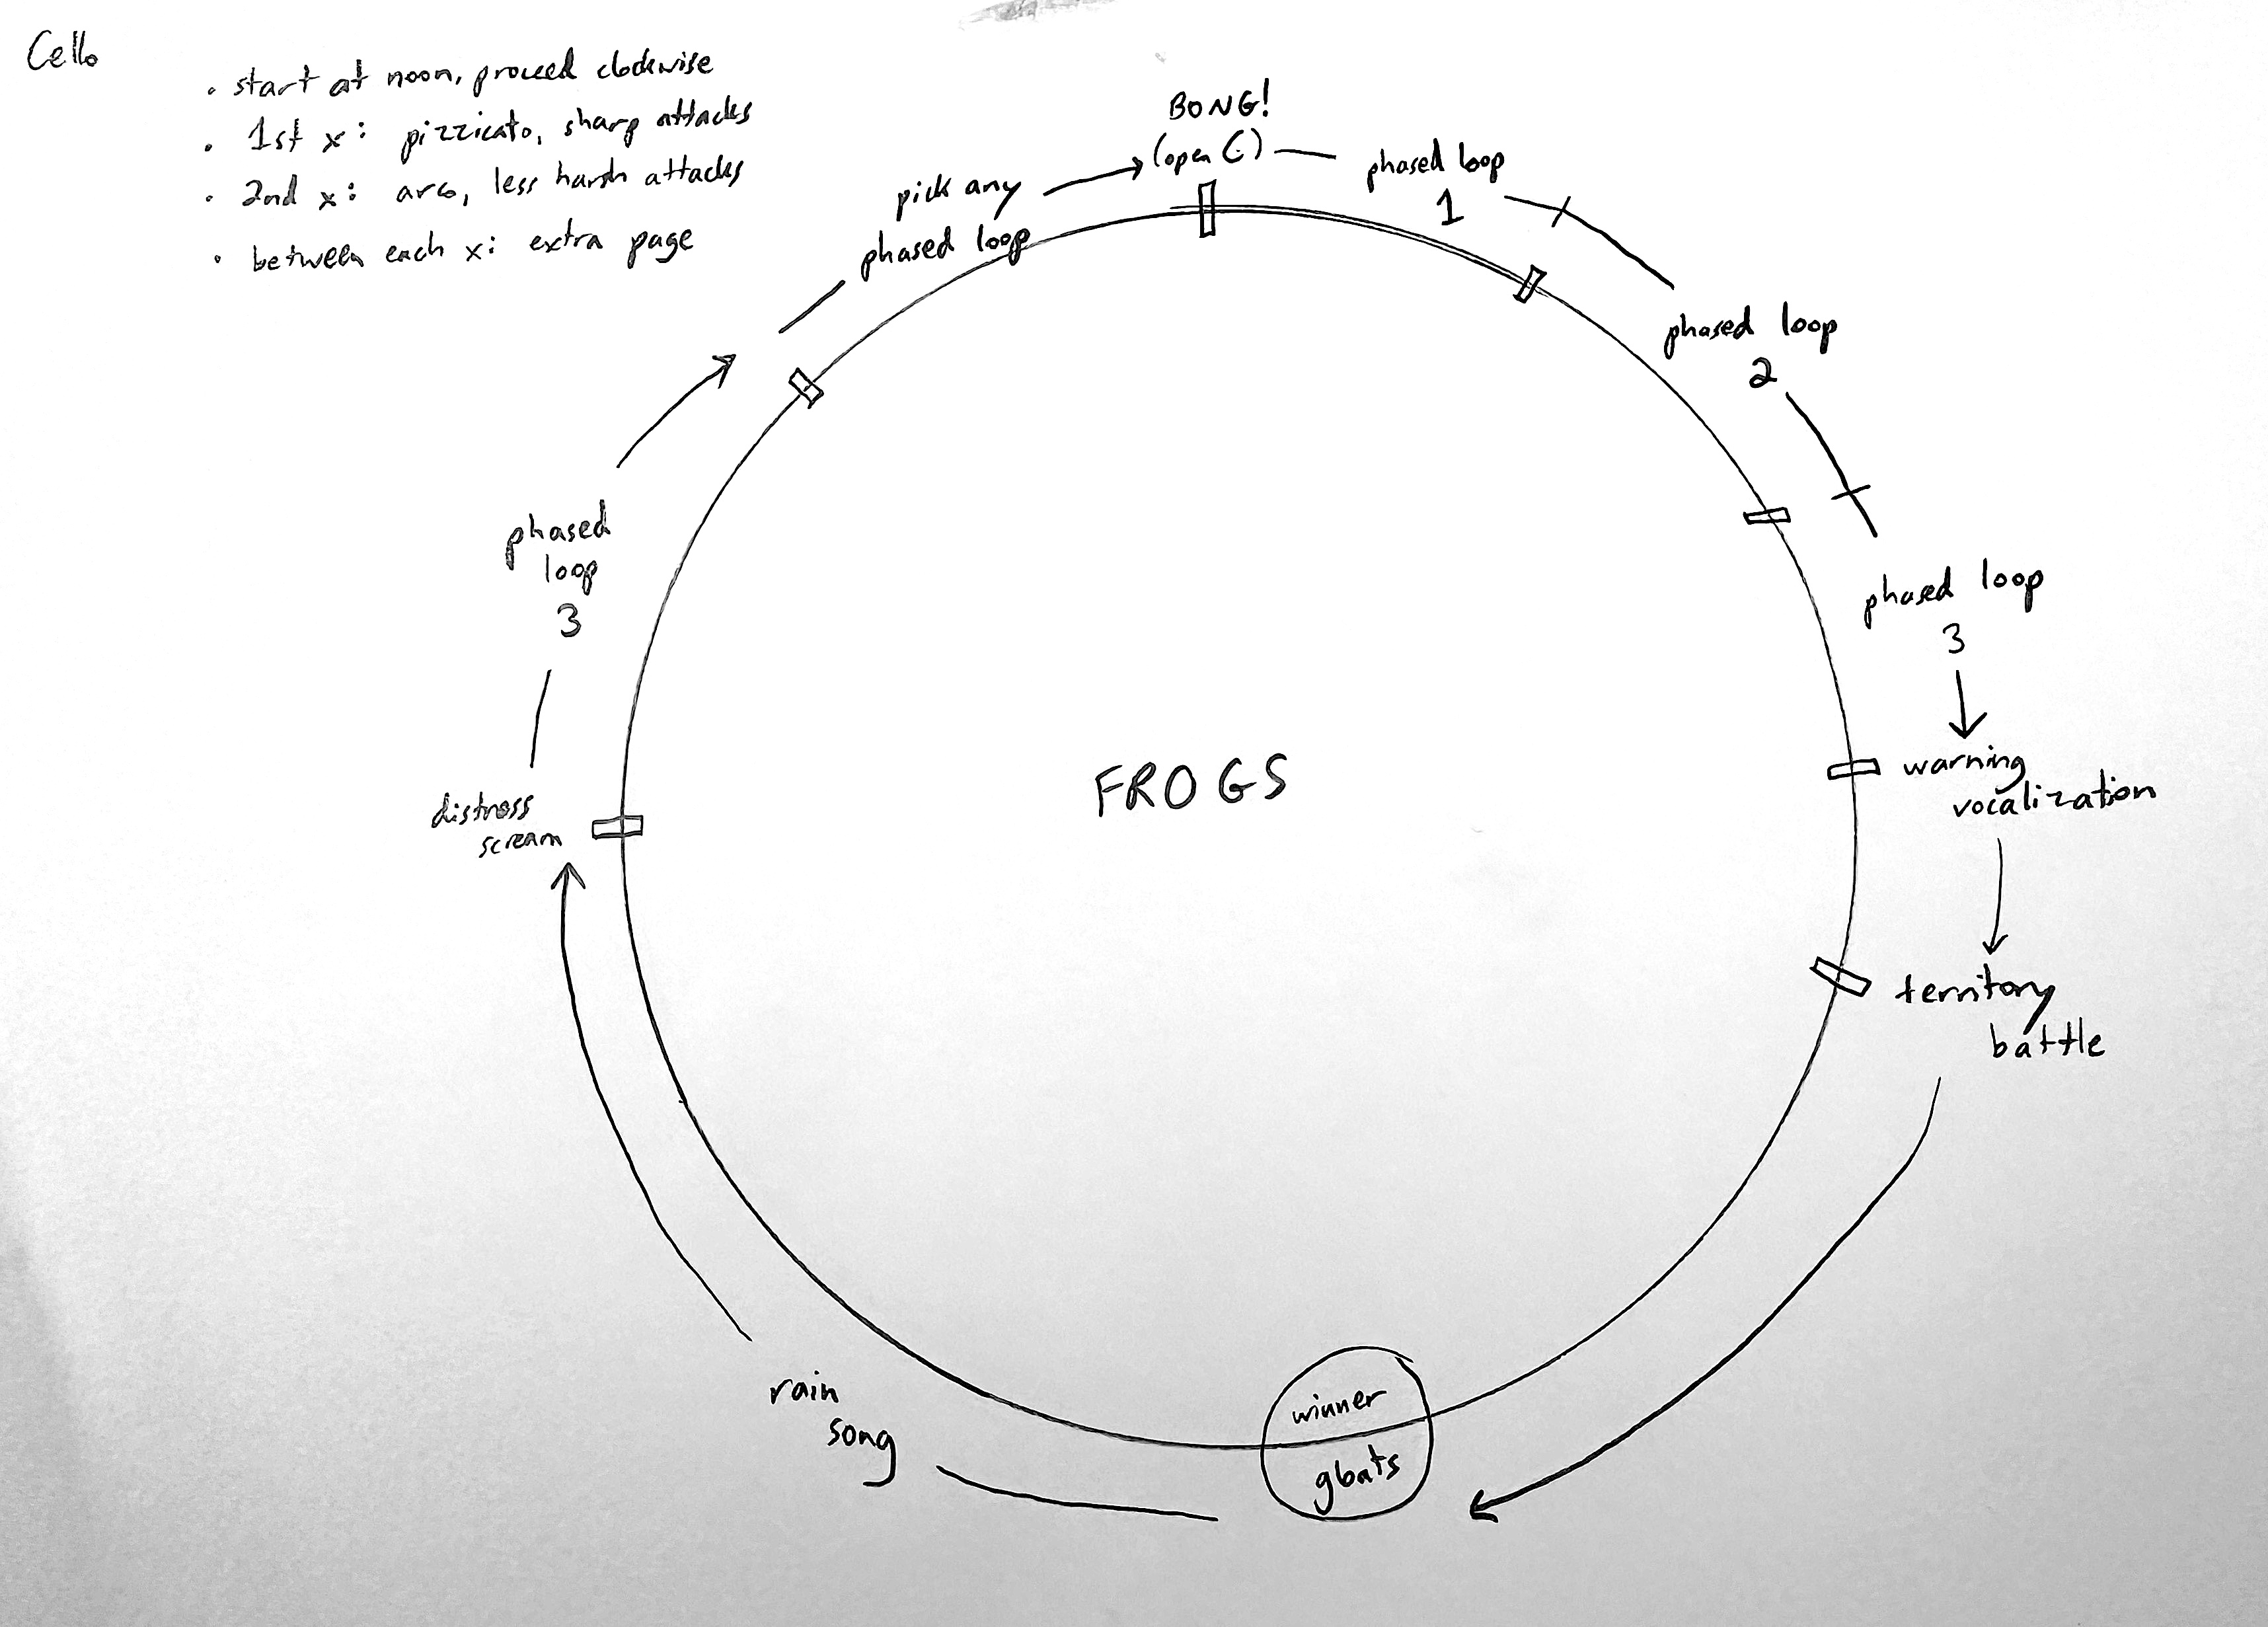 Cello
• start at noon, proceed clockwise
• 1st x: pizzicato, sharp attacks
• 2nd x: arco, less harsh attacks
• between each x: extra page
BONG!
(open C)
phased loop
1
phased loop
2
phased loop
3
warning
vocalization
territory
battle
winner
gloats
rain
song
distress
scream
phased
loop
3
pick any
phased loop
FROGS